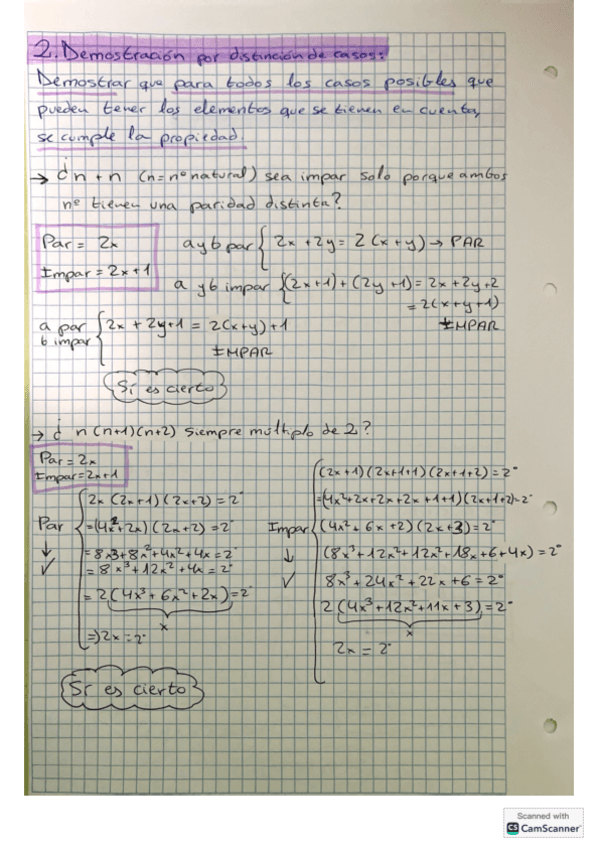 2. Demostración por distinción de casos:
Demostrar que para todos los casos posibles que
pueden tener los elementos que se tienen en cuenta,
se cumple la propiedad.
→ ¿n + n (n = nº natural) sea impar solo porque ambos
nº tienen una paridad distinta?
Par = 2x
Impar = 2x+1
a y b par { 2x + 2y = 2(x+y) → PAR
a y b impar { (2x+1) + (2y+1) = 2x + 2y + 2
= 2(x+y+1)
IMPAR
a par
b impar { 2x + 2y+1 = 2(x+y)+1
IMPAR
Sí es cierto
→ ¿ n (n+1)(n+2) siempre múltiplo de 2?
Par = 2x
Impar = 2x+1
Par ↓ ✓
2x (2x+1)(2x+2) = 2°
=(4x²+2x)(2x+2) = 2°
= 8x3+8x²+4x²+4x = 2°
= 8x³+12x²+4x = 2°
= 2(4x³+6x²+2x) = 2°
x
=) 2x = 2°
Impar ↓ ✓
(2x+1)(2x+1+1)(2x+1+2) = 2°
=(4x²+2x+2x+2x+1+1)(2x+1+2)=2°
(4x²+6x+2)(2x+3) = 2°
(8x³+12x²+12x²+18x+6+4x) = 2°
8x³+24x²+22x+6 = 2°
2(4x³+12x²+11x+3) = 2°
x
2x = 2°
Sí es cierto
Scanned with
CS CamScanner